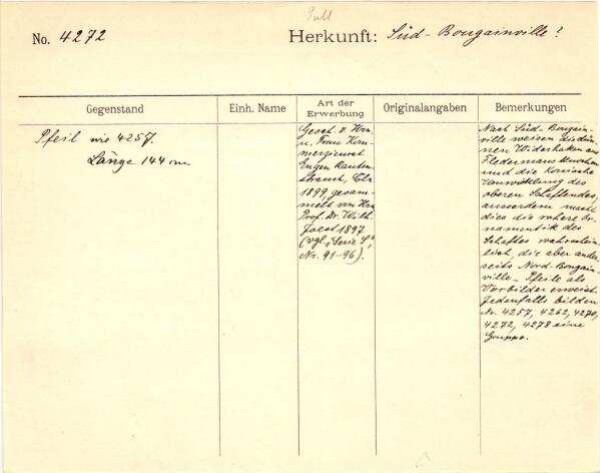 No. 4272
Herkunft: Süd-Bougainville?
Gegenstand
Einh. Name
Art der Erwerbung
Originalangaben
Bemerkungen
Pfeil wie 4257.
Länge 144 cm
Gesch. v. Hrn.
u. Frau Kom-
merzienrat
Eugen Rauten-
strauch, Cöln
1899 gesam-
melt von Hrn.
Prof. Dr. Wilh.
Joest 1897
(vgl. "Serie S",
Nr. 91-96).
Nach Süd-Bougain-
ville weisen die dün-
nen Widerhaken aus
Fledermausknochen
und die konische
Umwicklung des
oberen Schaftendes,
ausserdem macht
dies die rohere Or-
namentik des
Schaftes wahrschein-
lich, die aber ander-
seits Nord-Bougain-
ville-Pfeile als
Vorbilder erweist.
Jedenfalls bilden
Nr. 4257, 4262, 4270,
4272, 4278 eine
Gruppe.